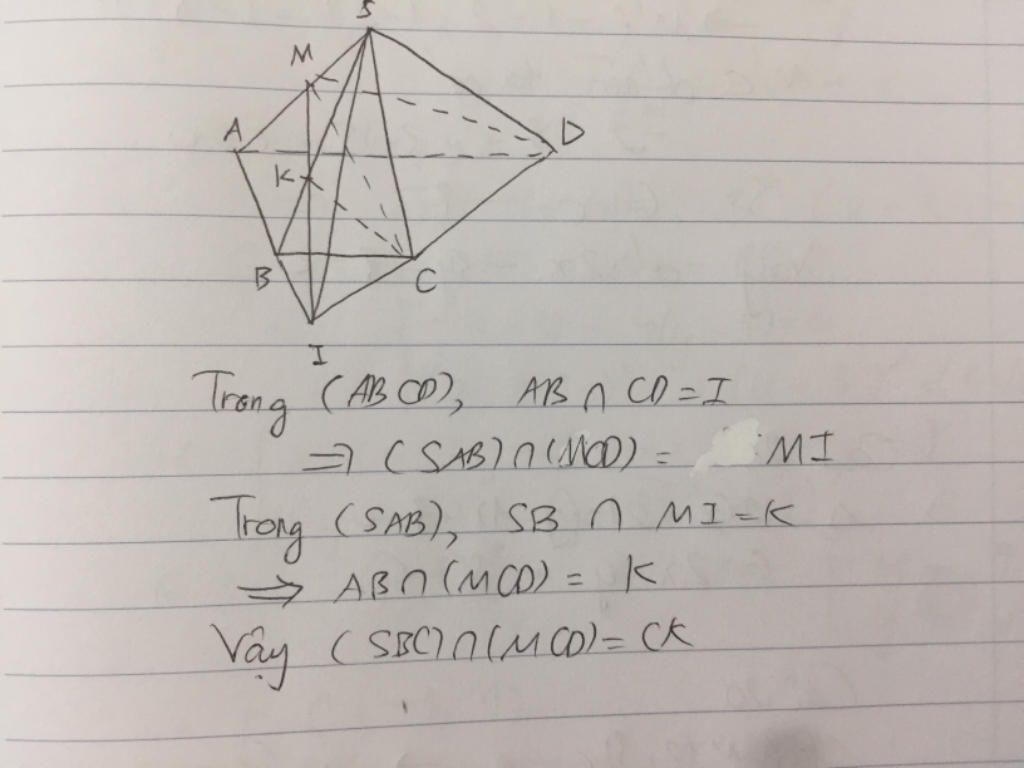 S
M
A
D
K
B
C
I
Trong (ABCD), AB ∩ CD = I
⇒ (SAB) ∩ (MCD) = MI
Trong (SAB), SB ∩ MI = K
⇒ AB ∩ (MCD) = K
Vậy (SBC) ∩ (MCD) = CK